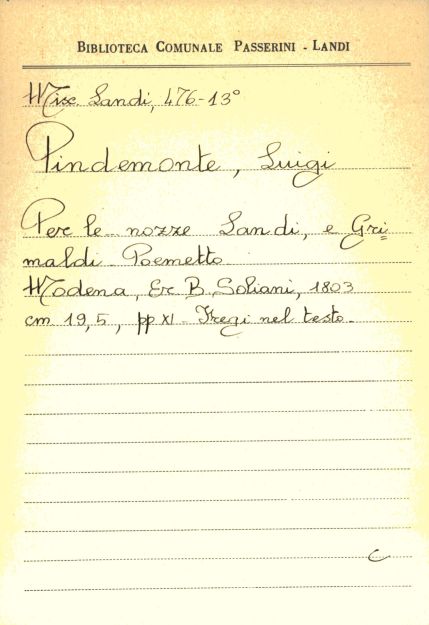 BIBLIOTECA COMUNALE PASSERINI - LANDI
Misc Landi, 476-13°
Pindemonte, Luigi
Per le nozze Landi, e Gri=
maldi. Poemetto
Modena, Er. B. Soliani, 1803
cm 19,5, pp XI. Fregi nel testo.
C